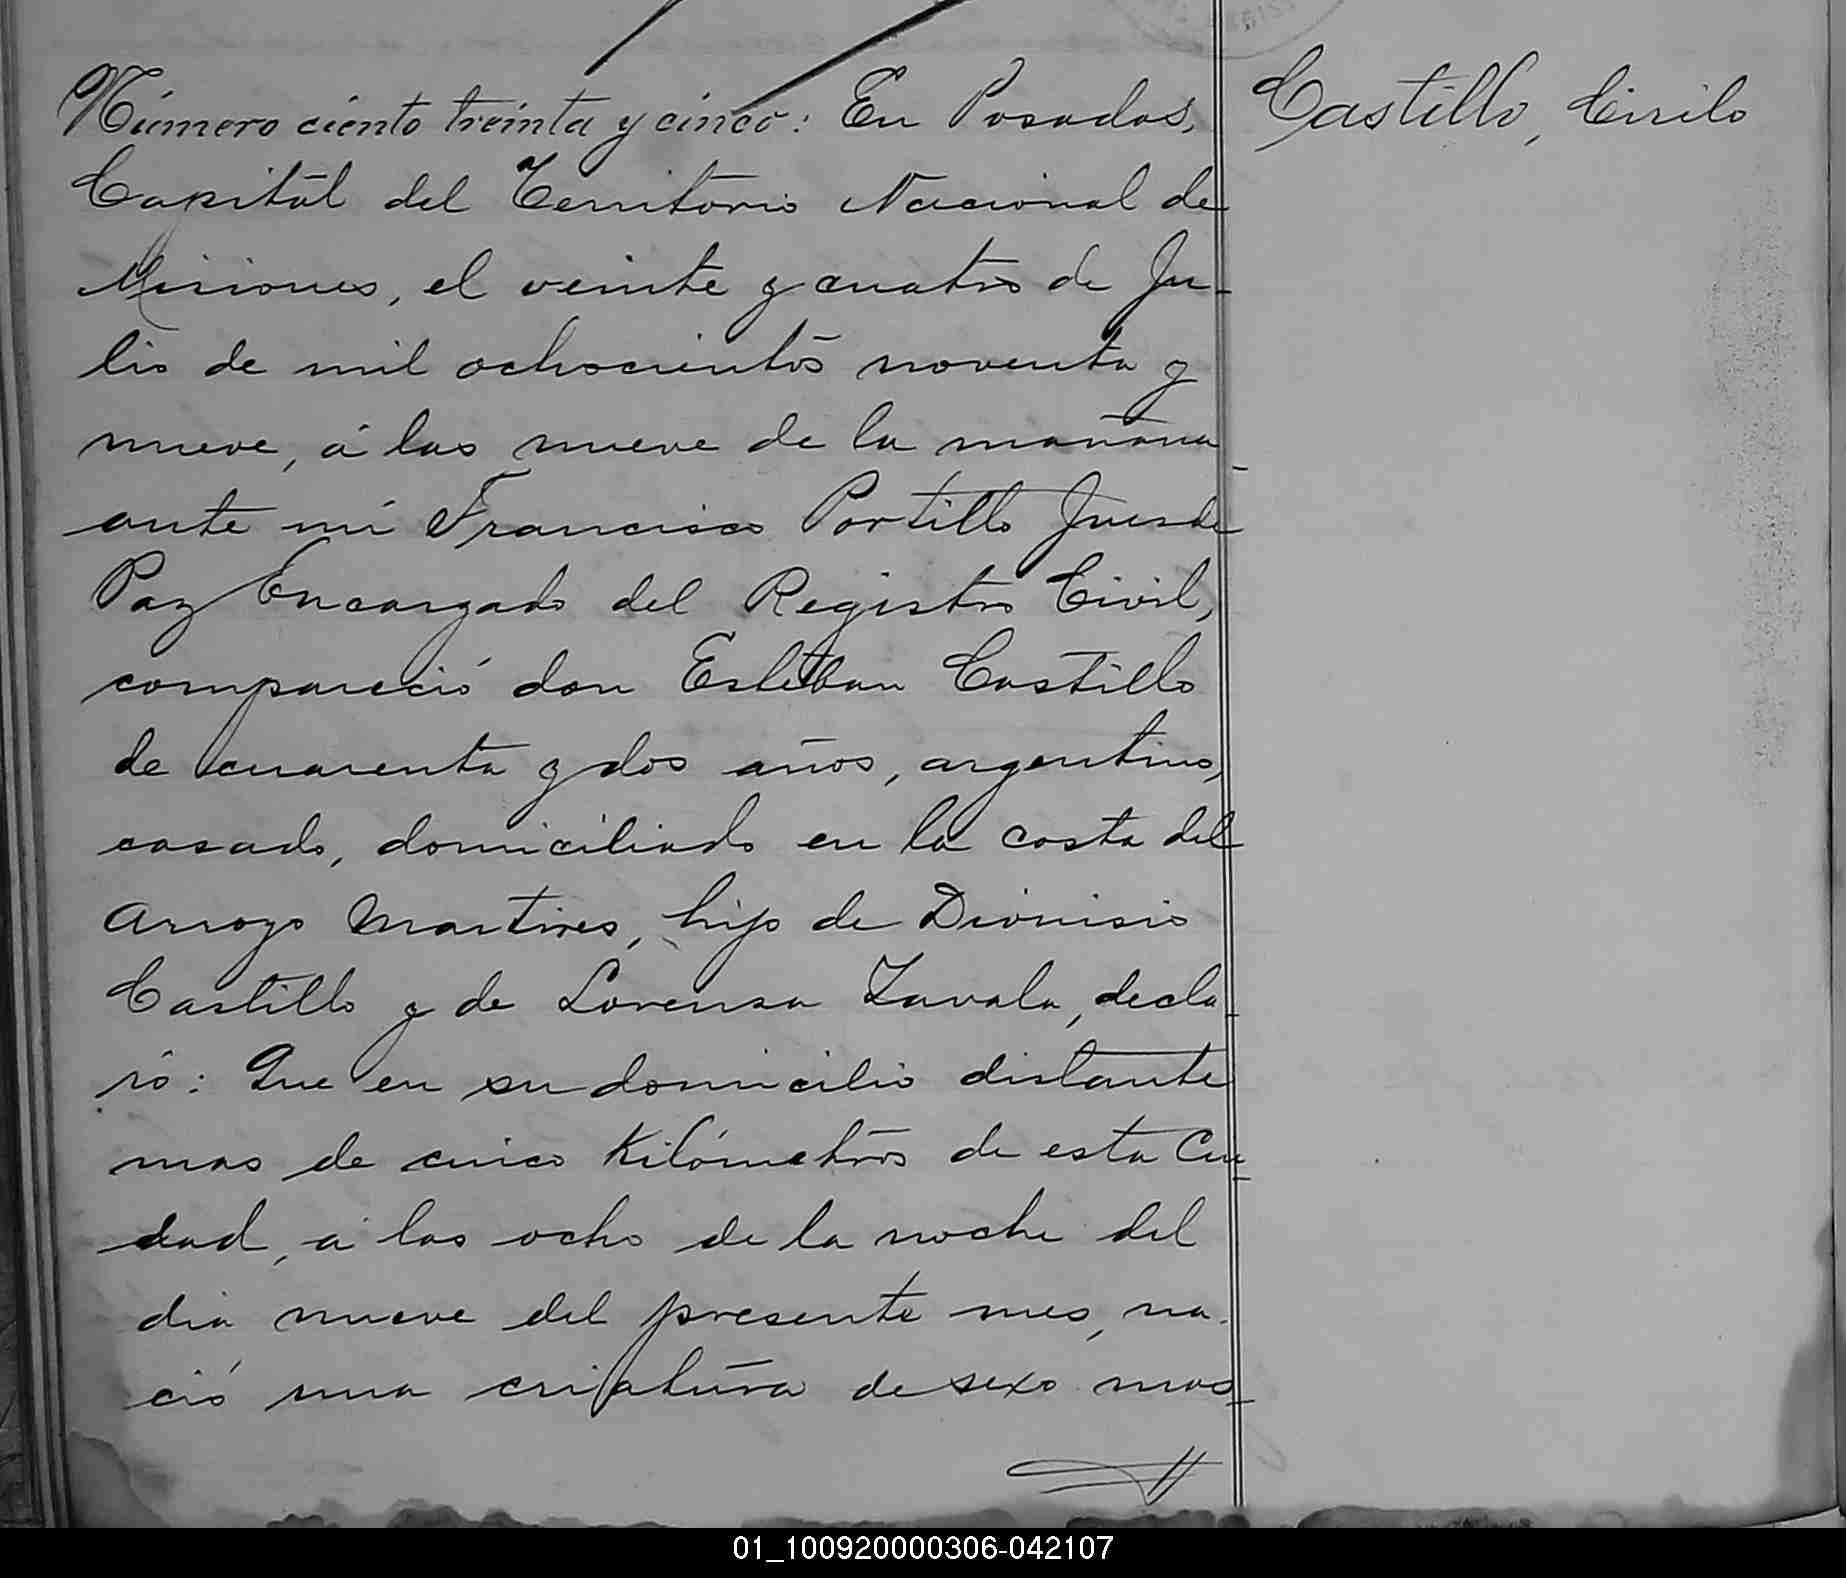 Número ciento treinta y cinco: En Posadas,
Castillo, Cirilo
Capital del Territorio Nacional de
Misiones, el veinte y cuatro de Ju-
lio de mil ochocientos noventa y
nueve, á las nueve de la mañana
ante mí Francisco Portillo Juez de
Paz Encargado del Registro Civil,
compareció don Esteban Castillo
de cuarenta y dos años, argentino,
casado, domiciliado en la costa del
Arroyo Martires, hijo de Dionisio
Castillo y de Lorensa Zavala, decla-
ró: Que en su domicilio distante
mas de cinco Kilómetros de esta Ciu-
dad, á las ocho de la noche del
dia nueve del presente mes, na-
ció una criatura de sexo mas-
01_100920000306-042107